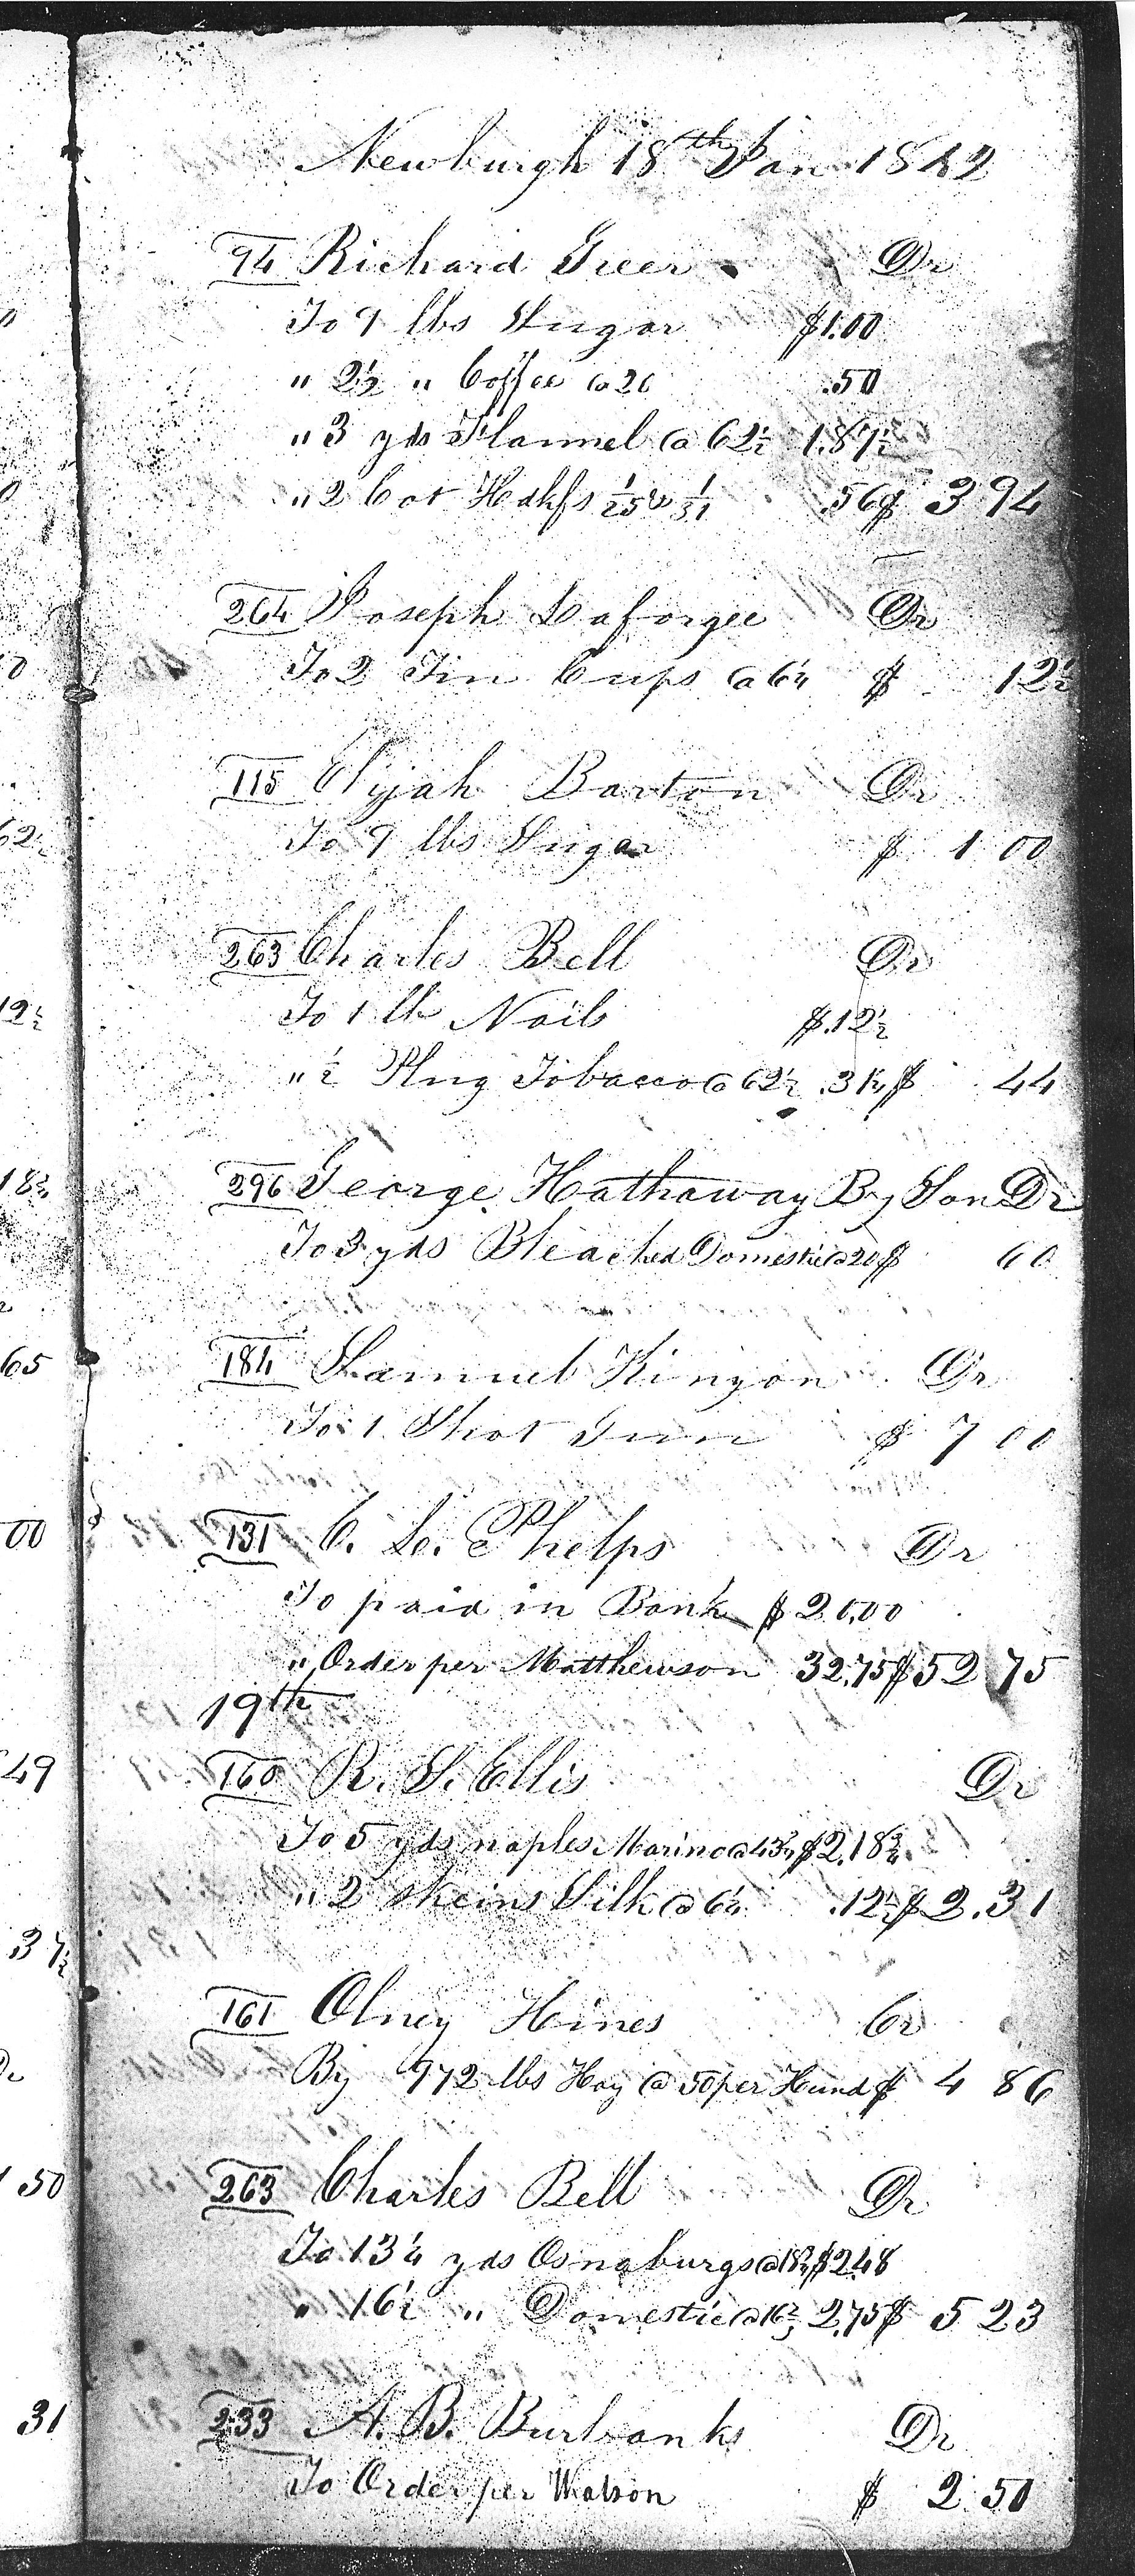 Newburgh 18th Jan 1842
94 Richard Greer Dr
To 9 lbs Sugar $1.00
" 2½ " Coffee @ 20 .50
" 3 yds Flannel @ 62½ 1.87½
" 2 Cot Hdkfs 1/25 & 1/31 .56 $ 3 94
264 Joseph Laforgee Dr
To 2 Tin Cups @ 6¼ $ 12½
115 Elijah Barton Dr
To 9 lbs Sugar $ 1 00
263 Charles Bell Dr
To 1 lb Nails $.12½
" ½ Plug Tobacco @ 62½ .31¼ $ 44
296 George Hathaway By Son Dr
To 3 yds Bleached Domestic @ 20 $ 60
184 Samuel Kinyon Dr
To 1 Shot Gun $ 7 00
131 C. L. Phelps Dr
To paid in Bank $ 20.00
" Order per Matthewson 32.75 $ 52 75
19th
160 R. S. Ellis Dr
To 5 yds naples Marino @ 43¾ $2.18¾
" 2 skeins Silk @ 6¼ .12½ $ 2.31
161 Olney Hines Cr
By 972 lbs Hay @ 50 per Hund $ 4 86
263 Charles Bell Dr
To 13¼ yds Osnaburgs @ 18¾ $2.48
" 16½ " Domestic @ 16⅔ 2.75 $ 5 23
233 A. B. Burbanks Dr
To Order per Watson $ 2 50
0
0
62½
12½
18¾
65
00
49
37½
Dr
1 50
31